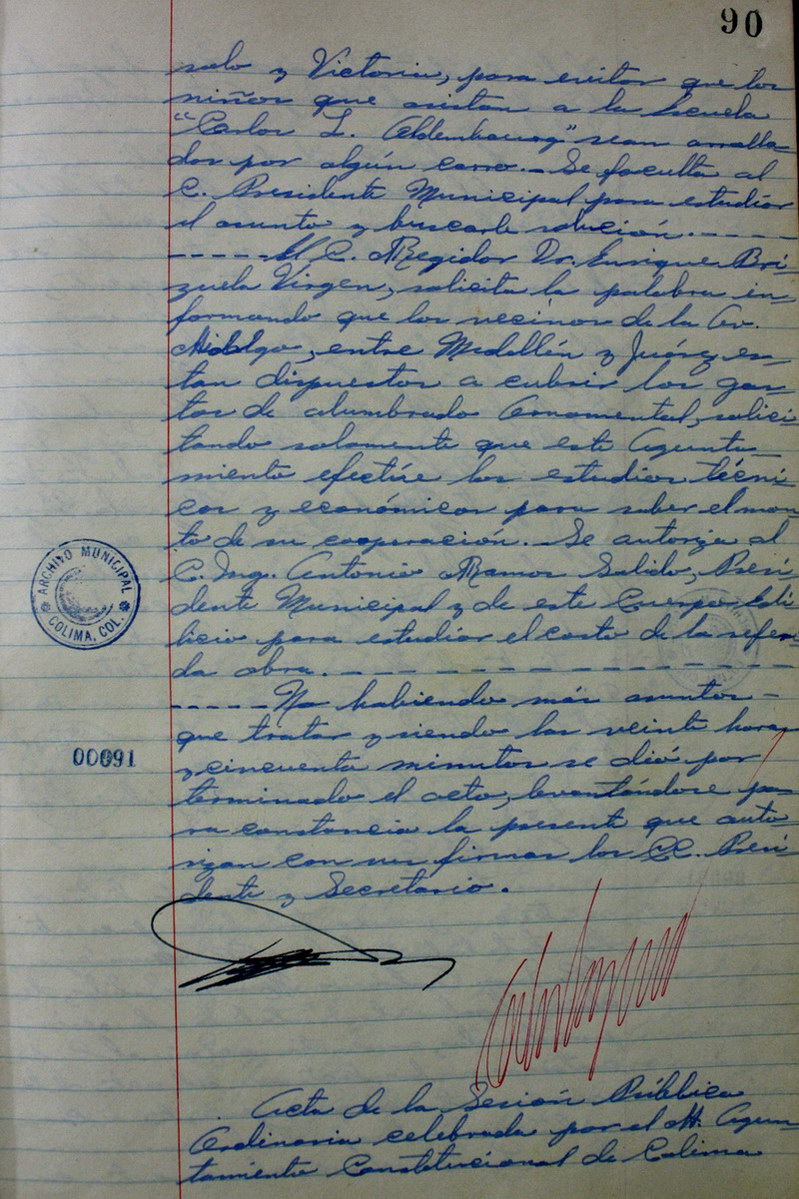 90
salo y Victoria, para evitar que los
niños que asistan a la Escuela
"Carlos L. Oldenbourg" sean arrolla-
dos por algún carro.- Se faculta al
C. Presidente Municipal para estudiar
el asunto y buscarle solución.- - - -
- - - - -El C. Regidor Dr. Enrique Bri-
zuela Virgen, solicita la palabra in-
formando que los vecinos de la Av.
Hidalgo, entre Medellín y Juárez es-
tan dispuestos a cubrir los gas-
tos de alumbrado Ornamental, solici-
tando solamente que este Ayunta-
miento efectúe los estudios técni-
cos y económicos para saber el mon-
to de su cooperación.- Se autoriza al
C. Ing. Antonio Ramos Salido, Presi-
dente Municipal y de este Cuerpo Edi-
licio para estudiar el costo de la referi-
da obra.- - - - - - - - - - - - -
- - - - -No habiendo más asuntos -
que tratar y siendo las veinte horas
y cincuenta minutos se dió por
terminado el acto, levantándose pa-
ra constancia la presente que auto-
rizan con sus firmas los CC. Presi-
dente y Secretario.
ARCHIVO MUNICIPAL
COLIMA, COL.
00091
Acta de la Sesión Pública
Ordinaria celebrada por el H. Ayun-
tamiento Constitucional de Colima